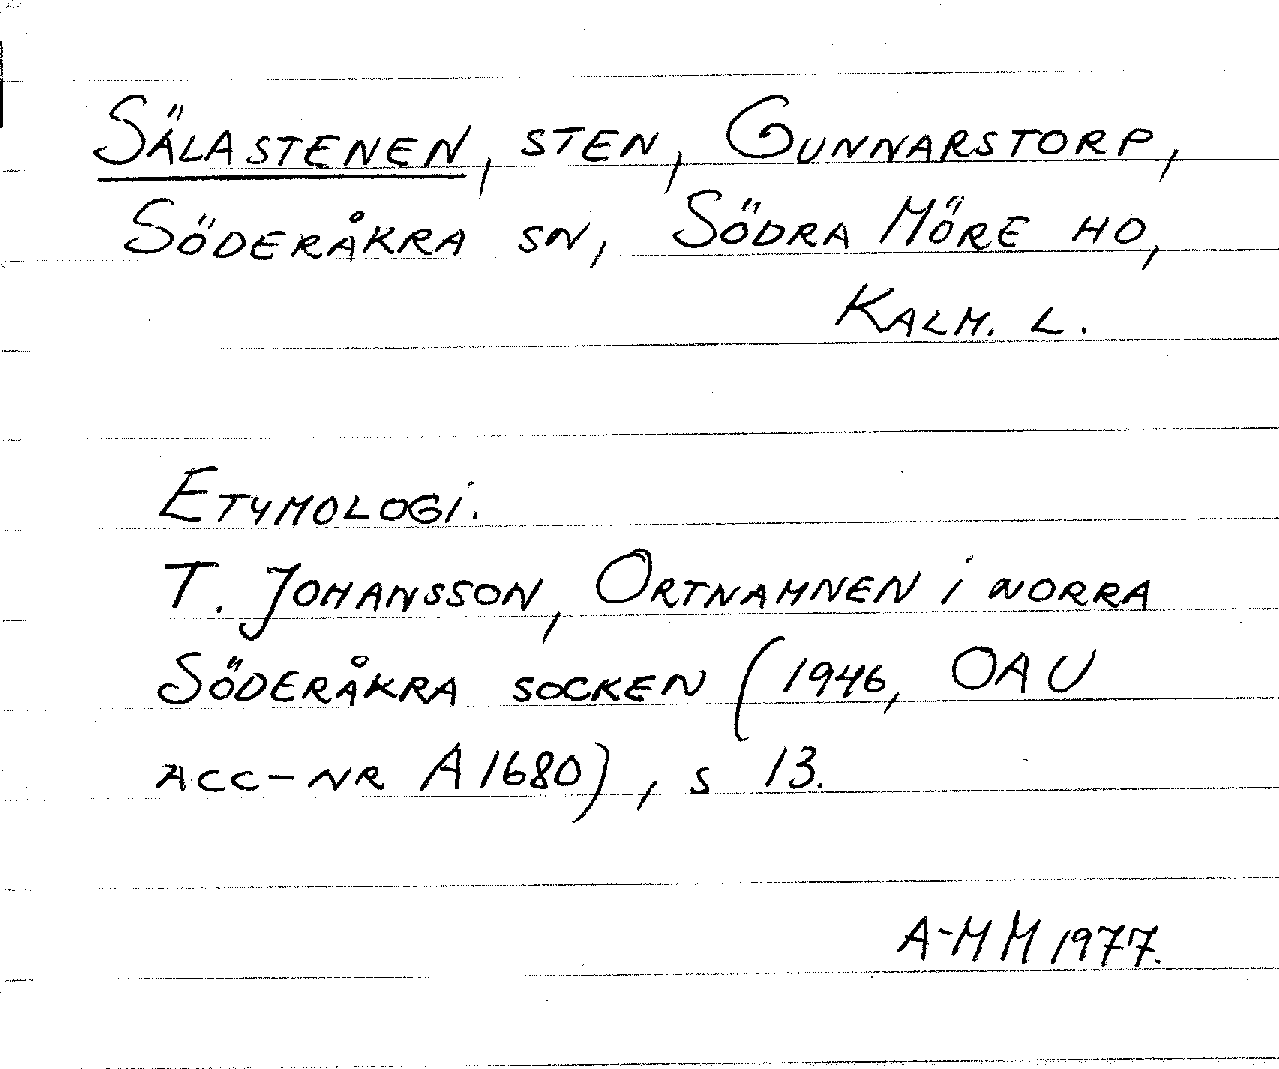 SÄLASTENEN, STEN, GUNNARSTORP,
SÖDERÅKRA SN, SÖDRA MÖRE HD,
KALM. L.
ETYMOLOGI.
T. JOHANSSON, ORTNAMNEN I NORRA
SÖDERÅKRA SOCKEN (1946, OAU
ACC-NR A1680), S 13.
A-MM 1977.